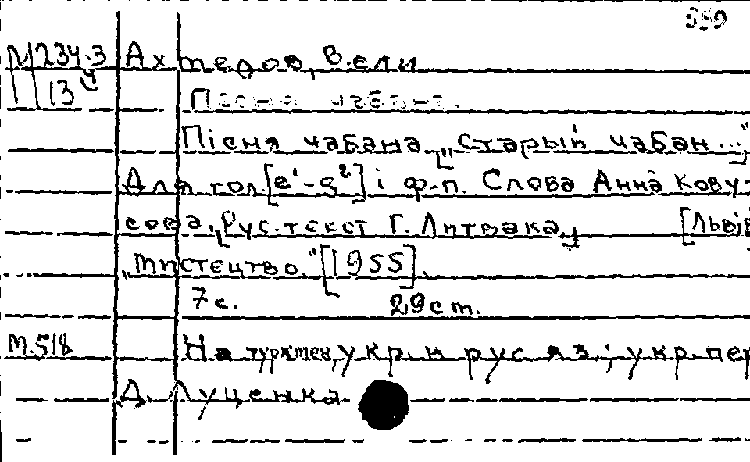 М234.3 Ахмедов, Вели
113 Пісня чабана.
Пісня чабана. „Старый чабан..."
Для гол. [e¹-g²] і ф-п. Слова Анна Ковусова.
[Рус. текст Г. Литвака] [Львів]
„Мистецтво." [1955].
7 с. 29 см.
М.518 На туркмен, укр. и рус яз.; укр. пер
Д. Луценка